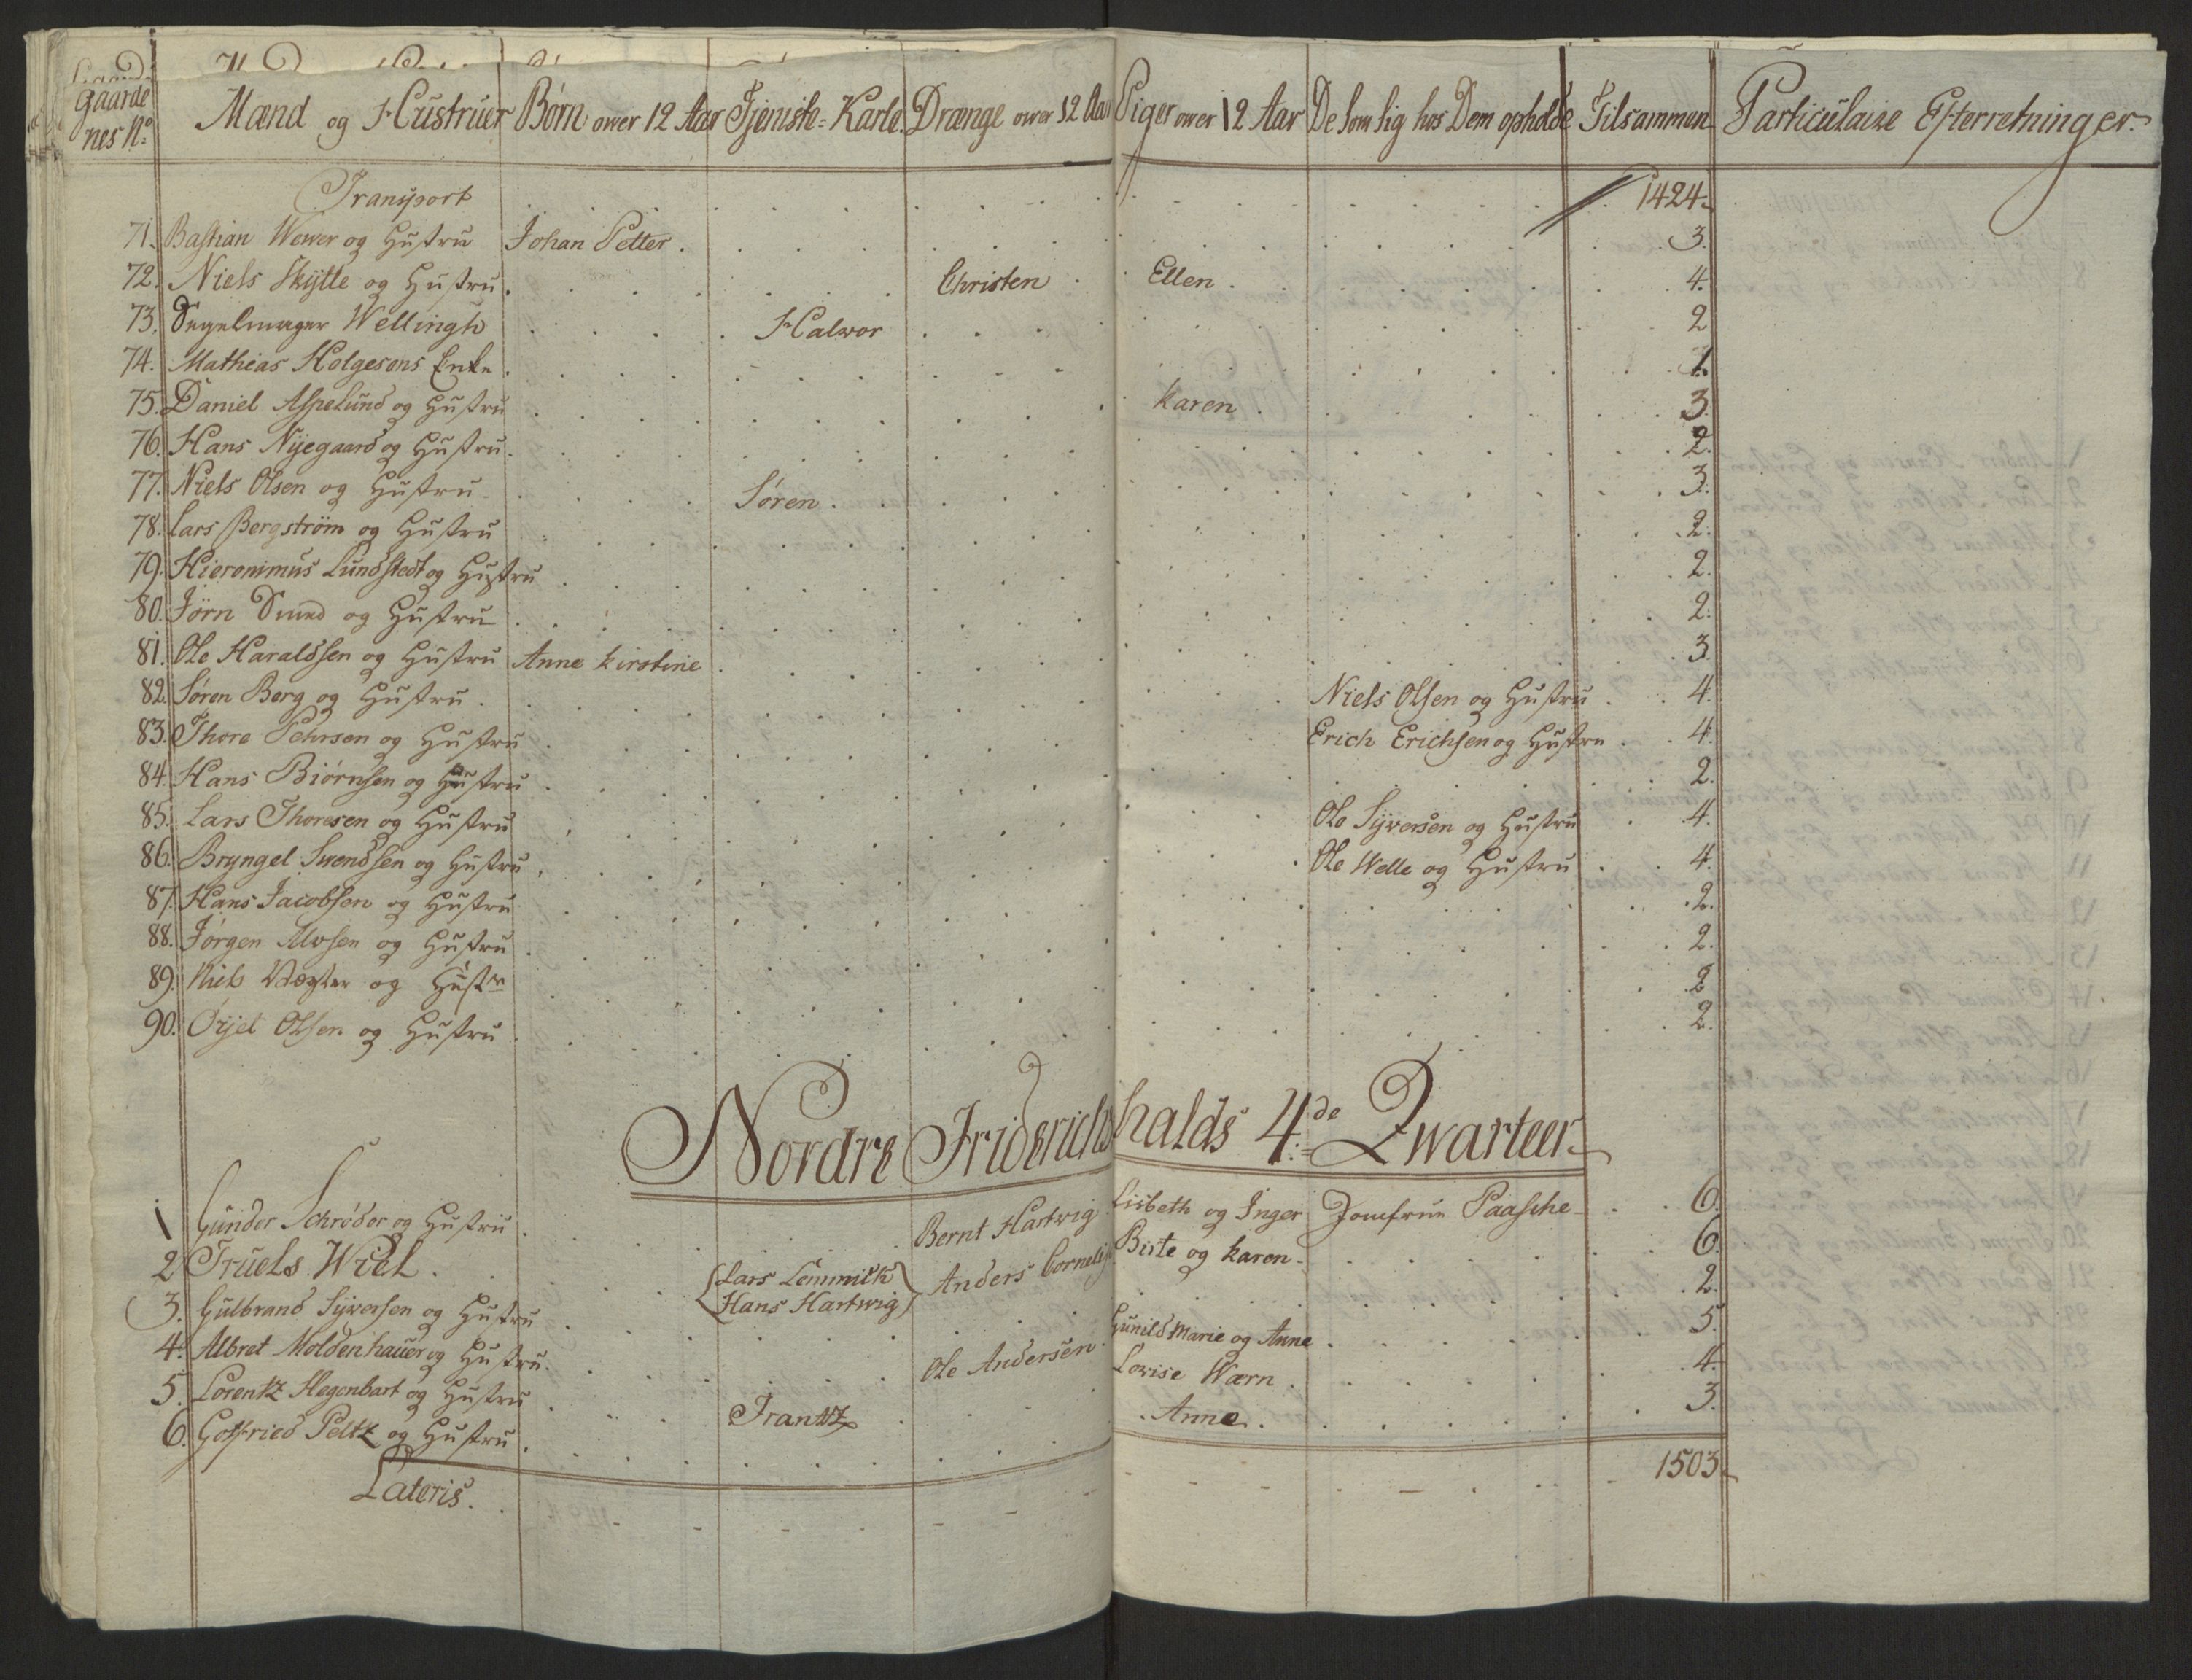 Gaarde nes No Mænd og Hustruer Børn ower 12 Aar Tjeniste-Karle Drænge ower 12 Aar Piger ower 12 Aar De som sig hos Dem opholde Tilsammen Particulaire Efterretninger.
Transport 1424
71. Bastian Wewer og Hustru Johan Petter 3.
72. Niels Skytte og Hustru Christen Ellen 4.
73. Segelmager Wellingh Halvor 2
74. Mathias Holgesøns Enke 1.
75. Daniel Aspelund og Hustru Karen 3.
76. Hans Nyegaard og Hustru 2.
77. Niels Olsen og Hustru Søren 3.
78. Lars Bergström og Hustru 2.
79. Hieronimus Lundstedt og Hustru 2.
80. Jörn Smed og Hustru 2.
81. Ole Haraldsen og Hustru Anne Kirstine 3.
82. Søren Berg og Hustru Niels Olsen og Hustru 4.
83. Thore Pehrsen og Hustru Erich Erichsen og Hustru 4.
84. Hans Biörnsen og Hustru 2.
85. Lars Thoresen og Hustru Ole Syversen og Hustru 4.
86. Bryngel Swendsen og Hustru Ole Welle og Hustru 4.
87. Hans Jacobsen og Hustru 2.
88. Jørgen Alvsen og Hustru 2.
89. Niels Vægter og Hustr 2.
90. Örjel Olsen og Hustru 2.
Nordre Friderichshalds 4de Qwarteer
1 Gunder Schröder og Hustru Bernt Hartwig Lisbeth og Inger Jomfrue Paasche 6.
2 Truels Wiel Lars Lemmick Hans Hartwig Anders Cornelj Birte og Karen 6.
3. Gulbrand Syversen og Hustru 2.
4. Albret Moldenhauer og Hustru Ole Andersen Gunild Marie og Anne 5.
5. Lorentz Hegenbart og Hustru Lovise Wærn 4.
6. Gotfried Peltz og Hustru Frantz Anne 3.
Lateris. 1503